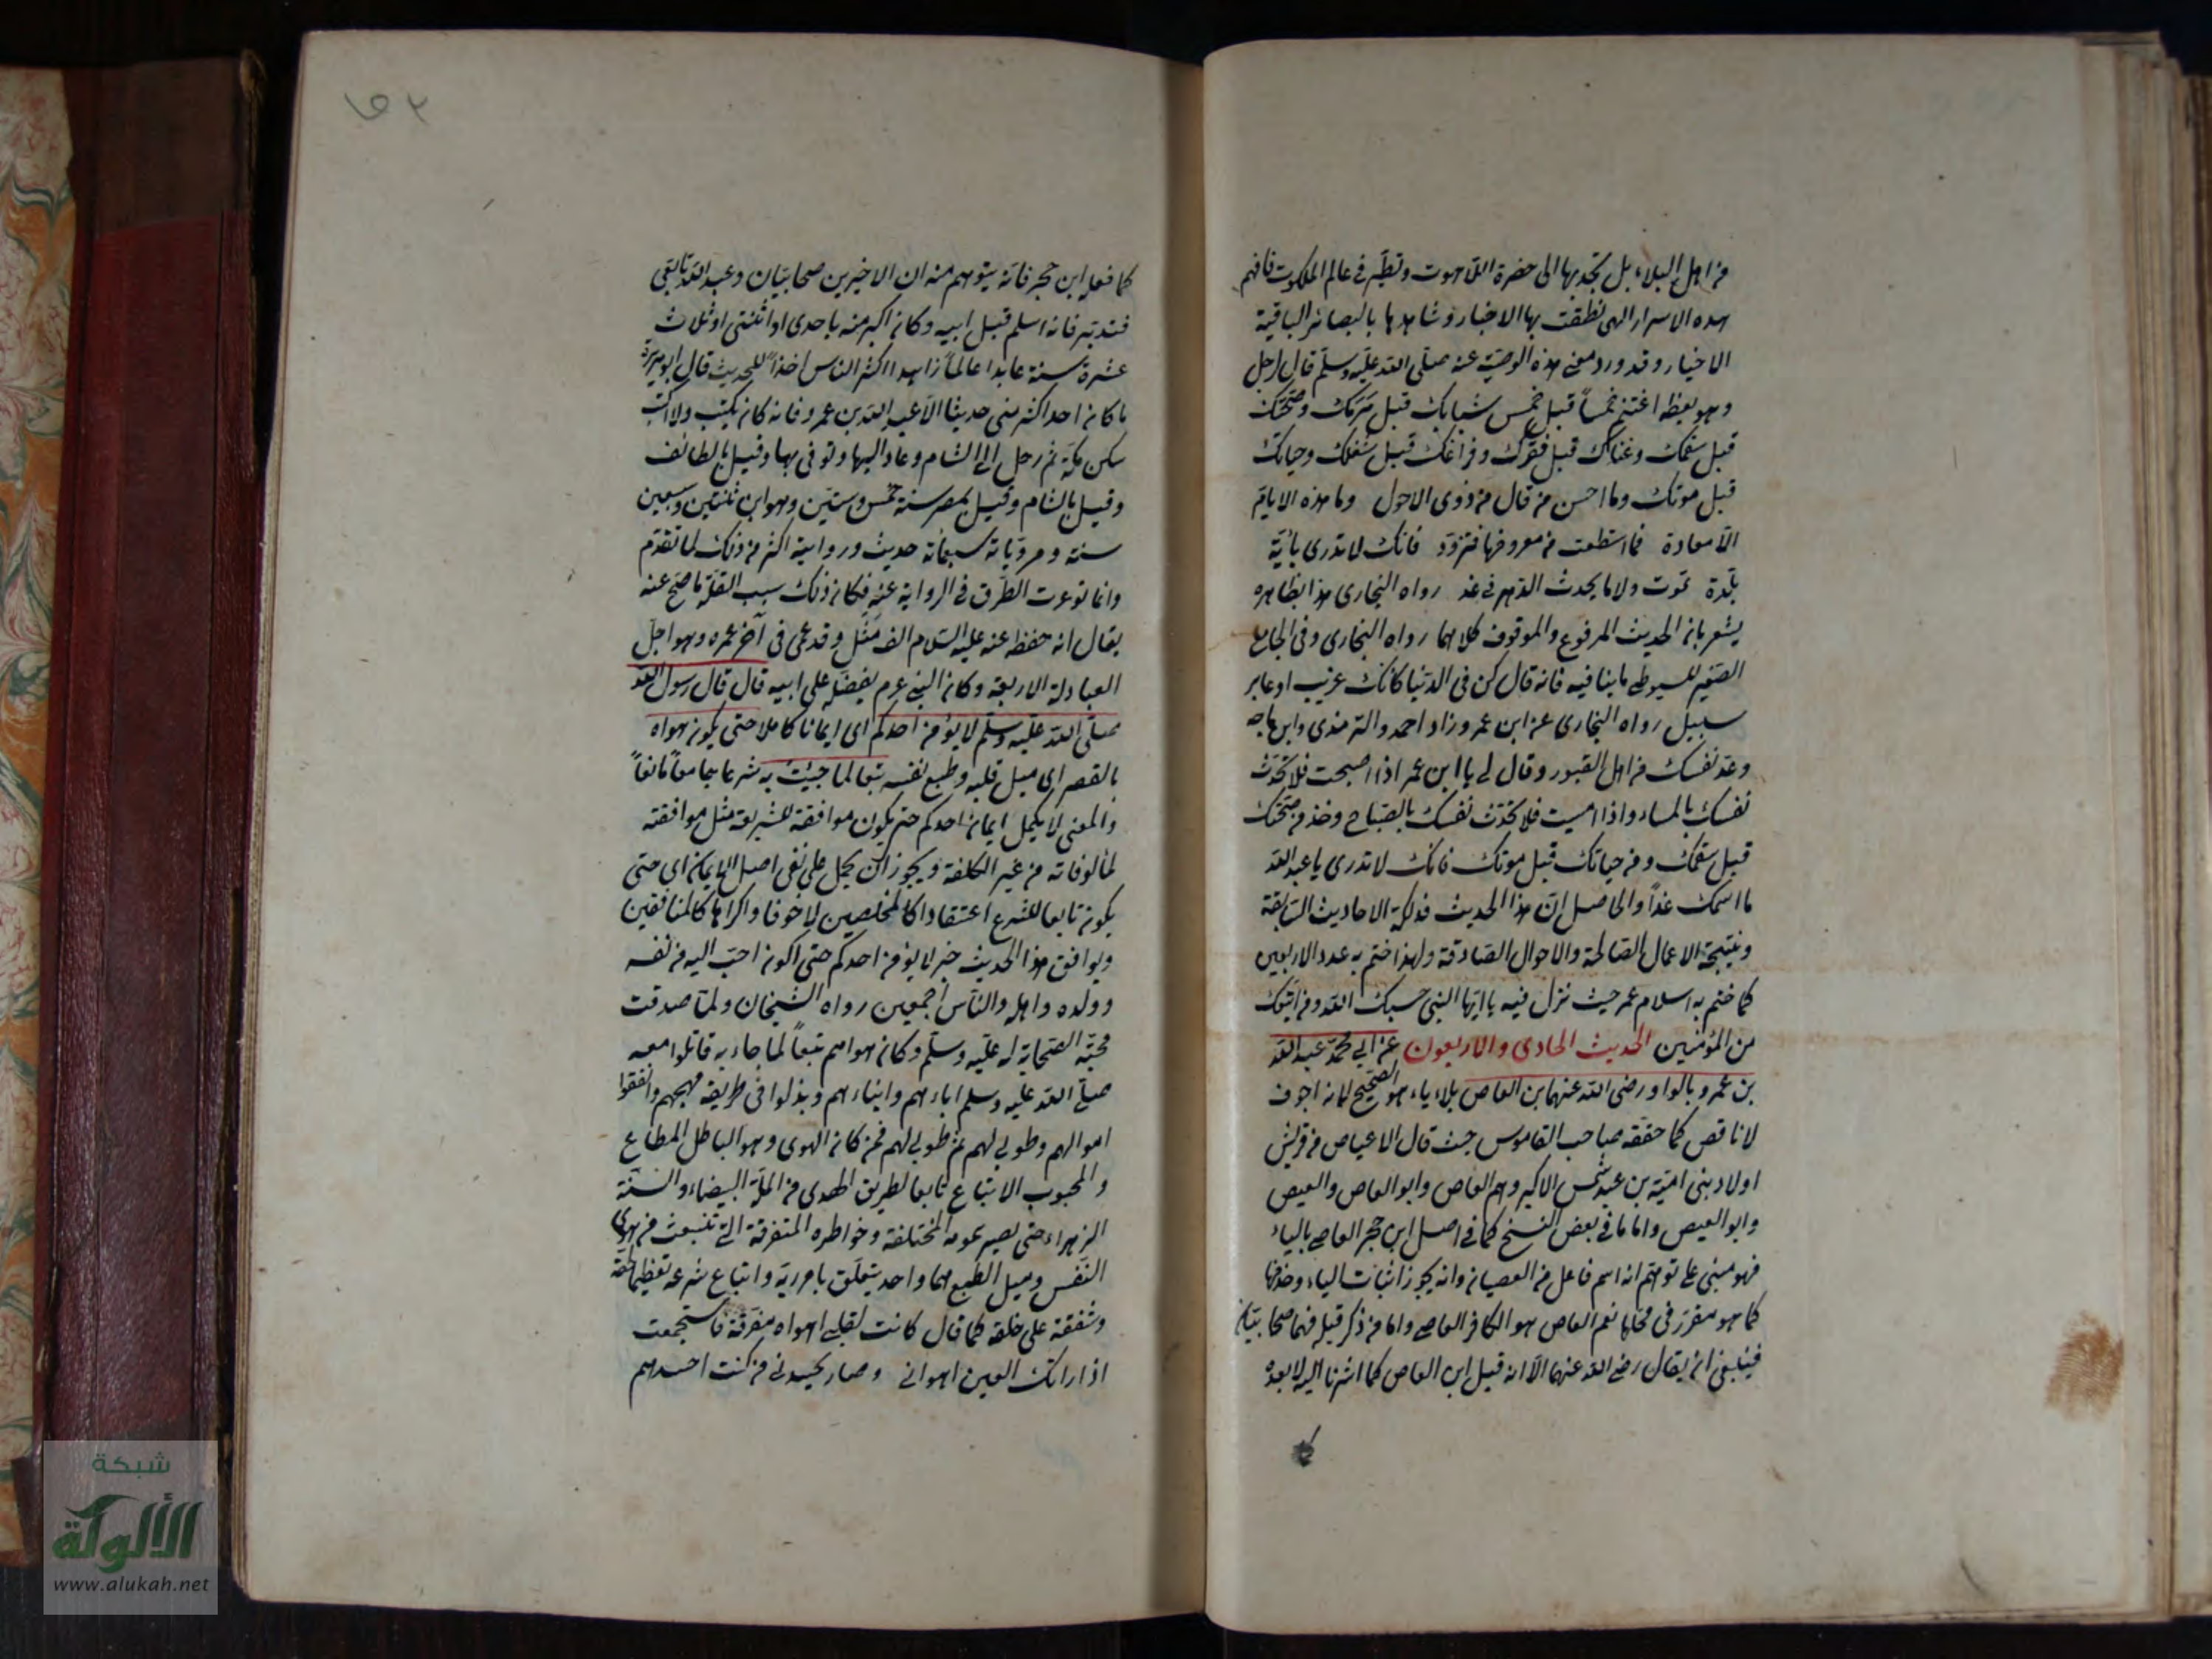 من اهل البلاء بل تجذبها الى حضرة اللاهوت وتطير في عالم الملكوت فافهم
هذه الاسرار التي نطقت بها الاخبار وشاهدها بالبصائر الباقية
الاخيار وقد ورد معنى هذه الوصية عنه صلى الله عليه وسلم قال لرجل
وهو يعظه اغتنم خمساً قبل خمس شبابك قبل هرمك وصحتك
قبل سقمك وغناك قبل فقرك وفراغك قبل شغلك وحياتك
قبل موتك وما احسن من قال من ذوى الاحول وما هذه الايام
الا معارة فما اسطعت من معروفها فتزود فانك لا تدرى باية
بلدة تموت ولا ما يحدث الدهر في غد رواه البخارى هذا بظاهره
يشعر بان الحديث المرفوع والموقوف كلاهما رواه البخارى وفي الجامع
الصغير للسيوطي ما ينافيه فانه قال كن في الدنيا كانك غريب او عابر
سبيل رواه البخارى عن ابن عمر وزاد احمد والترمذى وابن ماجه
وعد نفسك من اهل القبور وقال لي يا ابن عمر اذا اصبحت فلا تحدث
نفسك بالمساء واذا امسيت فلا تحدث نفسك بالصباح وخذ من صحتك
قبل سقمك ومن حياتك قبل موتك فانك لا تدرى يا عبد الله
ما اسمك غداً والحاصل ان هذا الحديث فذلكة الاحاديث السابقة
ونتيجة الاعمال الصالحة والاحوال الصادقة ولهذا ختم به عدد الاربعين
كما ختم به اسلام عمر حيث نزل فيه يا ايها النبي حسبك الله ومن اتبعك
من المؤمنين الحديث الحادى والاربعون عن ابي محمد عبد الله
بن عمرو بالواو رضى الله عنهما بن العاص بلا ياء هو الصحيح لانه اجوف
لا ناقص كما حققه صاحب القاموس حيث قال الاعياص من قريش
اولاد بنى امية بن عبد شمس الاكبر وهم العاص وابو العاص والعيص
وابو العيص واما ما في بعض النسخ كما في اصل ابن حجر العاصي بالياء
فهو مبنى على توهم انه اسم فاعل من العصيان وانه يجوز اثبات الياء وحذفها
كما هو مقرر في محلها نعم العاص هو الكافر العاصي واما من ذكر قبله فهما صحابيان
فينبغى ان يقال رضى الله عنهما الا انه قبل ابن العاص كما اشرنا اليه لا بعده
كما فعله ابن حجر فانه يتوهم منه ان الاخيرين صحابيان وعبد الله تابعى
فتدبر فانه اسلم قبل ابيه وكان اكبر منه باحدى او اثنتى او ثلاث
عشرة سنة عابدا عالماً زاهدا اكثر الناس اخذاً للحديث قال ابو هريرة
ما كان احد اكثر منى حديثا الا عبد الله بن عمرو فانه كان يكتب ولا اكتب
سكن مكة ثم رحل الى الشام وعاد اليها وتوفى بها وقيل بالطائف
وقيل بالشام وقيل بمصر سنة خمس وستين وهو ابن ثنتين وسبعين
سنة ومروياته سبعمائة حديث وروايته اكثر من ذلك لما تقدم
وانما توعرت الطرق في الرواية عنه فكان ذلك سبب القلة ما صح عنه
يقال انه حفظ عنه عليه السلام الف مثل وقد عمى في آخر عمره وهو اجل
العبادلة الاربعة وكان النبي عرم يفضله على ابيه قال قال رسول الله
صلى الله عليه وسلم لا يؤمن احدكم اى ايمانا كاملا حتى يكون هواه
بالقصر اى ميل قلبه وطبع نفسه تبعا لما جئت به شرعا جامعاً مانعاً
والمعنى لا يكمل ايمان احدكم حتى يكون موافقة للشريعة مثل موافقته
لمألوفاته من غير الكلفة ويجوز ان يحمل على نفى اصل الايمان اى حتى
يكون تابعا للشرع اعتقادا كالمخلصين لا خوفا واكراها كالمنافقين
ويوافق هذا الحديث خبر لا يؤمن احدكم حتى اكون احب اليه من نفسه
وولده واهله والناس اجمعين رواه الشيخان ولما صدقت
محبة الصحابة له عليه وسلم وكان هواهم تبعاً لما جاء به قاتلوا معه
صلى الله عليه وسلم اباءهم وابناءهم وبذلوا في طريقه مهجهم وانفقوا
اموالهم وطوبى لهم ثم طوبى لهم فمن كان الهوى وهو الباطل المطاع
والمحبوب الاتباع تابعا لطريق الهدى من الملة البيضاء والسنة
الزهراء حتى تصير همومه المختلفة وخواطره المتفرقة التي تنبعث من هوى
النفس وميل الطبع هما واحد يتعلق بامر ربه واتباع شرعه تعظيما لحقه
وشفقة على خلقه كما قال كانت لقلبى اهواء مفرقة فاستجمعت
اذ اراتك العين اهوائى وصار يحسدنى من كنت احسدهم
شبكة
الألوكة
www.alukah.net